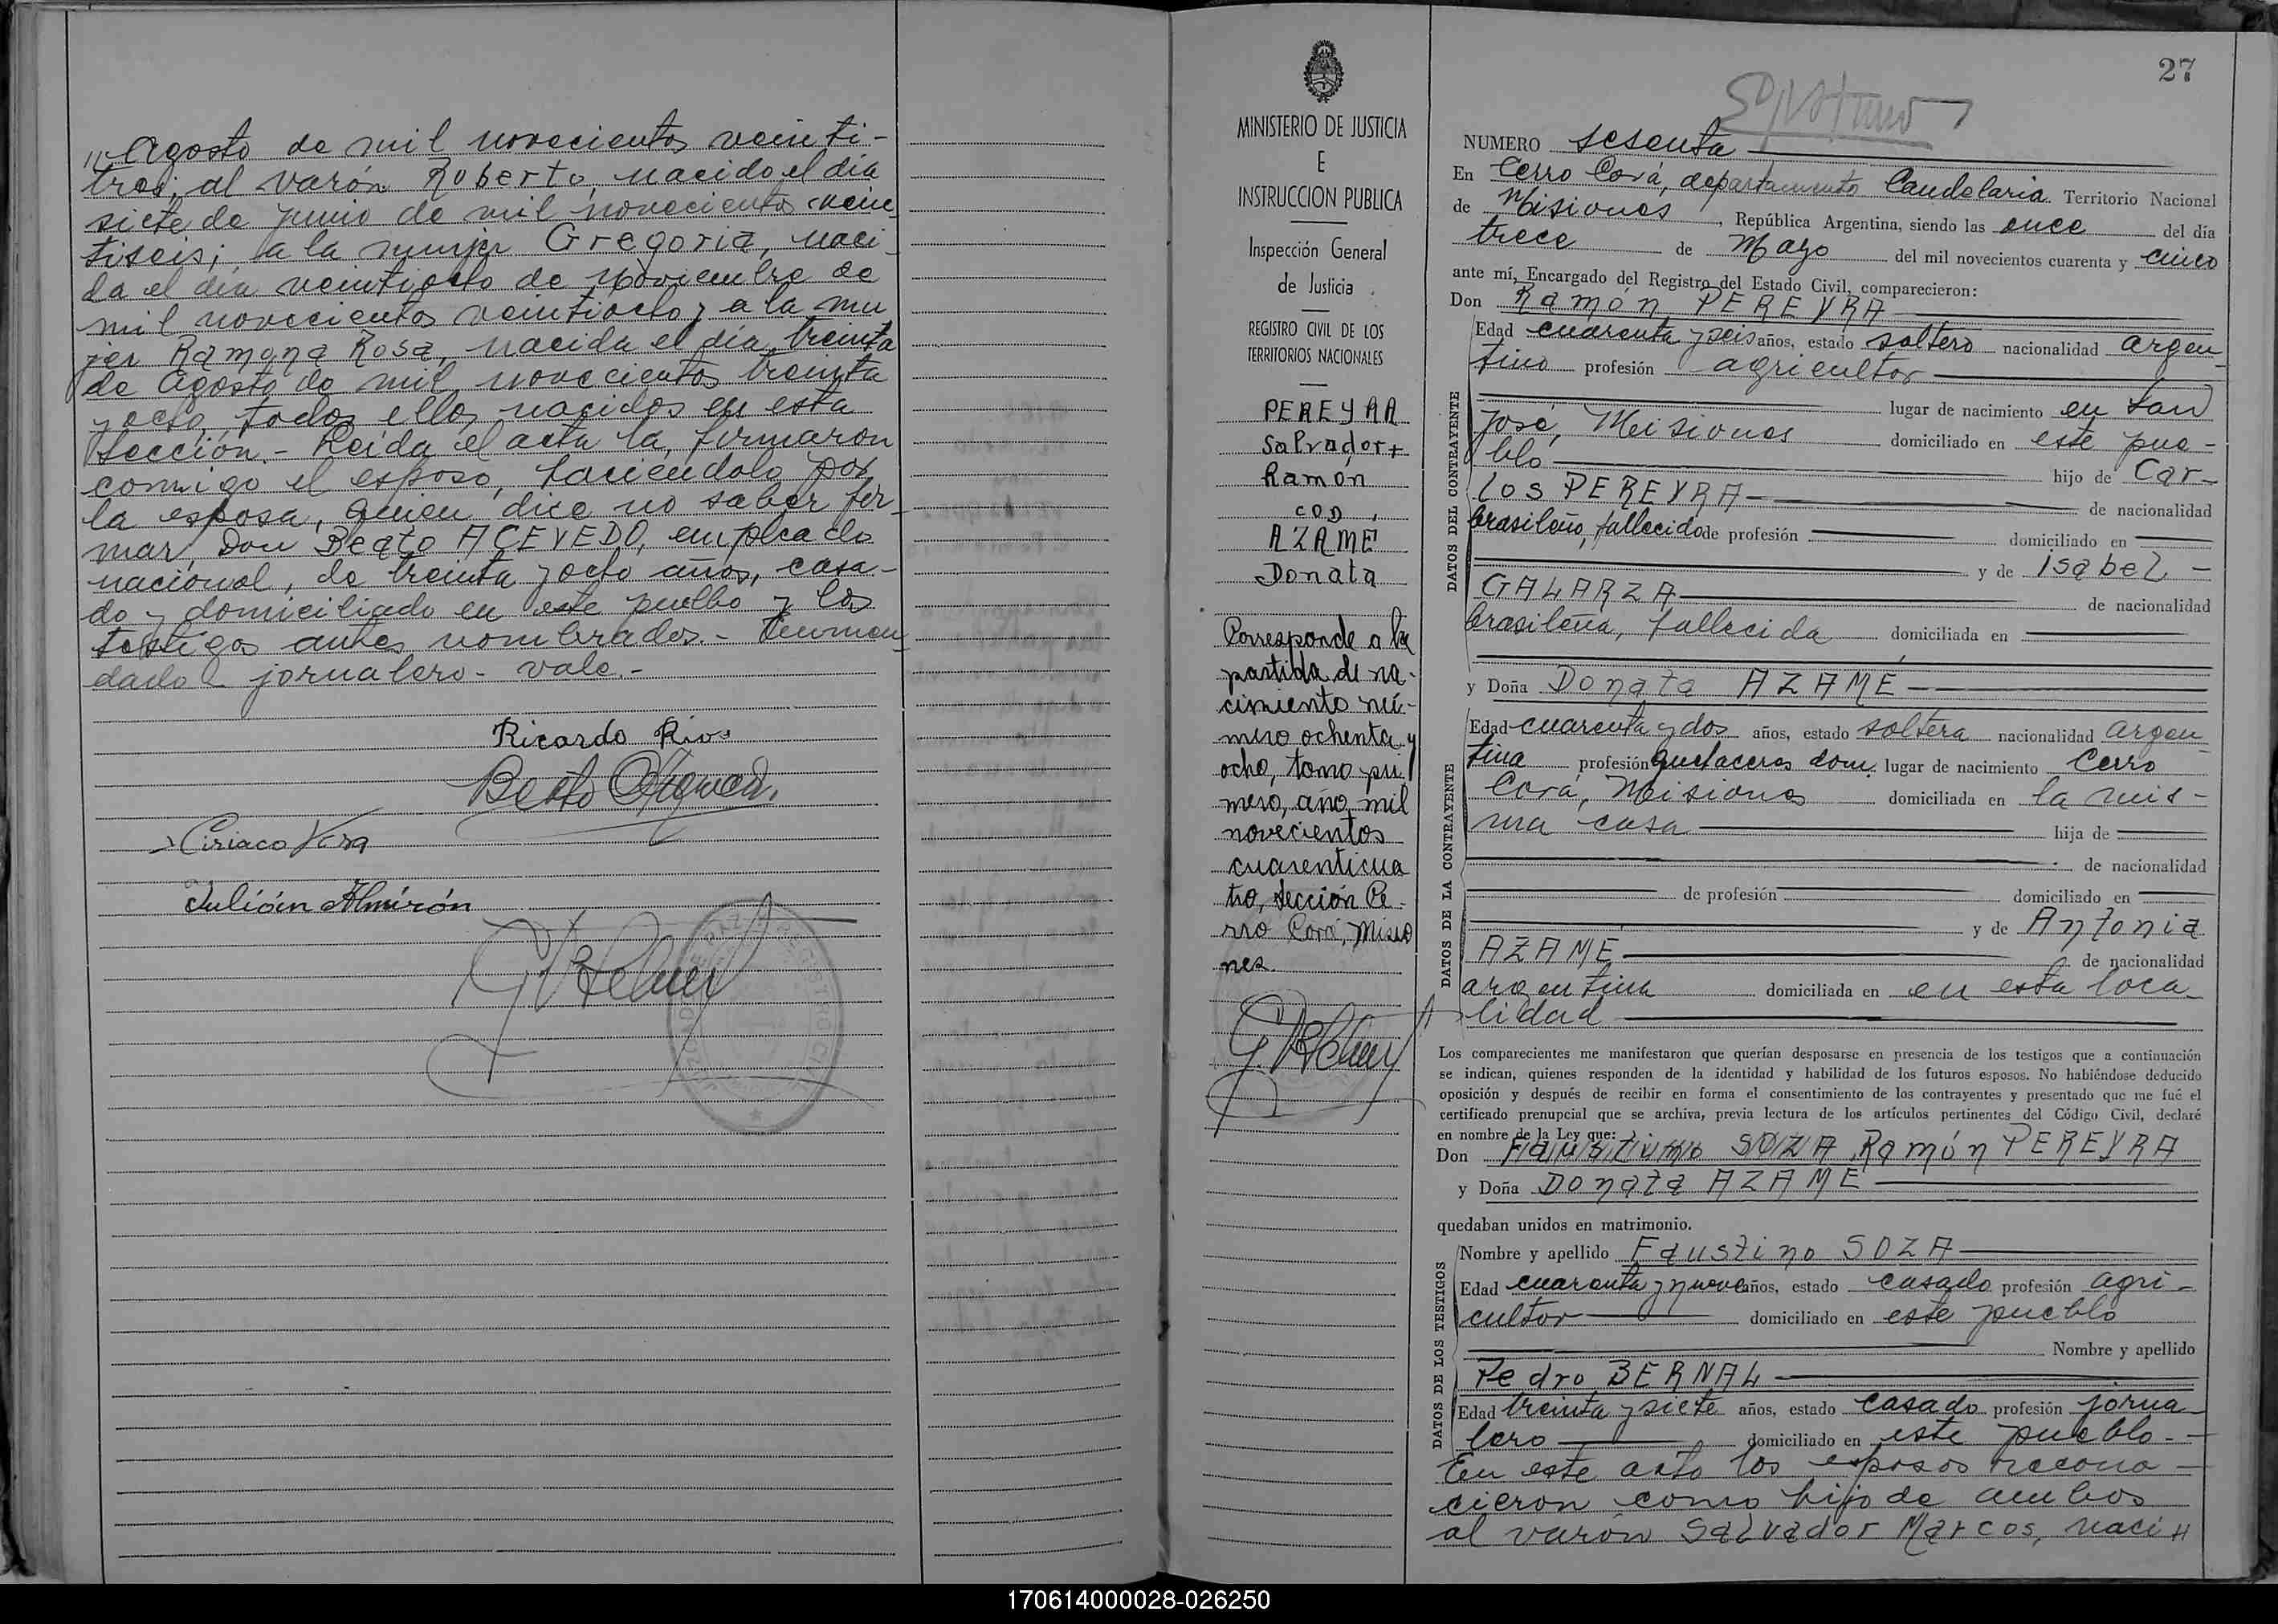 " Agosto de mil novecientos veinti-
tres; al varón Roberto, nacido el día
siete de junio de mil novecientos vein
tiseis; a la mujer Gregoria, naci-
da el día veintiocho de noviembre de
mil novecientos veintiocho y a la mu
jer Ramona Rosa, nacida el día treinta
de Agosto de mil novecientos treinta
y ocho, todos ellos nacidos en esta
Sección.- Leída el acta la firmaron
conmigo el esposo, haciéndolo por
la esposa, quien dice no saber fir-
mar, Don Beato ACEVEDO, empleado
nacional, de treinta y ocho años, casa-
do y domiciliado en este pueblo y los
testigos antes nombrados.- Enmen-
dado - jornalero - vale.-
Ricardo Rios
Ciriaco Vera
Julián Almirón
MINISTERIO DE JUSTICIA
E
INSTRUCCION PUBLICA
Inspección General
de Justicia
REGISTRO CIVIL DE LOS
TERRITORIOS NACIONALES
PEREYRA
Salvador +
Ramón
con
AZAME
Donata
Corresponde a la
partida de na-
cimiento nú-
mero ochenta y
ocho, tomo pri
mero, año mil
novecientos
cuarenticua
tro, Sección Ce-
rro Corá, Misio
nes.
27
NUMERO sesenta
En Cerro Corá, departamento Candelaria. Territorio Nacional
de Misiones, República Argentina, siendo las once del día
trece de Mayo del mil novecientos cuarenta y cinco
ante mí, Encargado del Registro del Estado Civil, comparecieron:
Don Ramón PEREYRA
DATOS DEL CONTRAYENTE
Edad cuarenta y seis años, estado soltero nacionalidad argen-
tino profesión agricultor
lugar de nacimiento en San
José, Misiones domiciliado en este pue-
blo hijo de Car-
los PEREYRA de nacionalidad
brasileño, fallecido de profesión domiciliado en
y de Isabel
GALARZA de nacionalidad
brasileña, fallecida domiciliada en
y Doña Donata AZAME
DATOS DE LA CONTRAYENTE
Edad cuarenta y dos años, estado soltera nacionalidad argen-
tina profesión quehaceres dom. lugar de nacimiento Cerro
Corá, Misiones domiciliada en la mis-
ma casa hija de
de nacionalidad
de profesión domiciliado en
y de Antonia
AZAME de nacionalidad
argentina domiciliada en en esta loca-
lidad
Los comparecientes me manifestaron que querían desposarse en presencia de los testigos que a continuación
se indican, quienes responden de la identidad y habilidad de los futuros esposos. No habiéndose deducido
oposición y después de recibir en forma el consentimiento de los contrayentes y presentado que me fué el
certificado prenupcial que se archiva, previa lectura de los artículos pertinentes del Código Civil, declaré
en nombre de la Ley que:
Don Faustino SOZA Ramón PEREYRA
y Doña Donata AZAME
quedaban unidos en matrimonio.
DATOS DE LOS TESTIGOS
Nombre y apellido Faustino SOZA
Edad cuarenta y nueve años, estado casado profesión agri-
cultor domiciliado en este pueblo
Nombre y apellido
Pedro BERNAL
Edad treinta y siete años, estado casado profesión jorna-
lero domiciliado en este pueblo.-
En este acto los esposos recono-
cieron como hijo de ambos
al varón Salvador Marcos, naci "
170614000028-026250